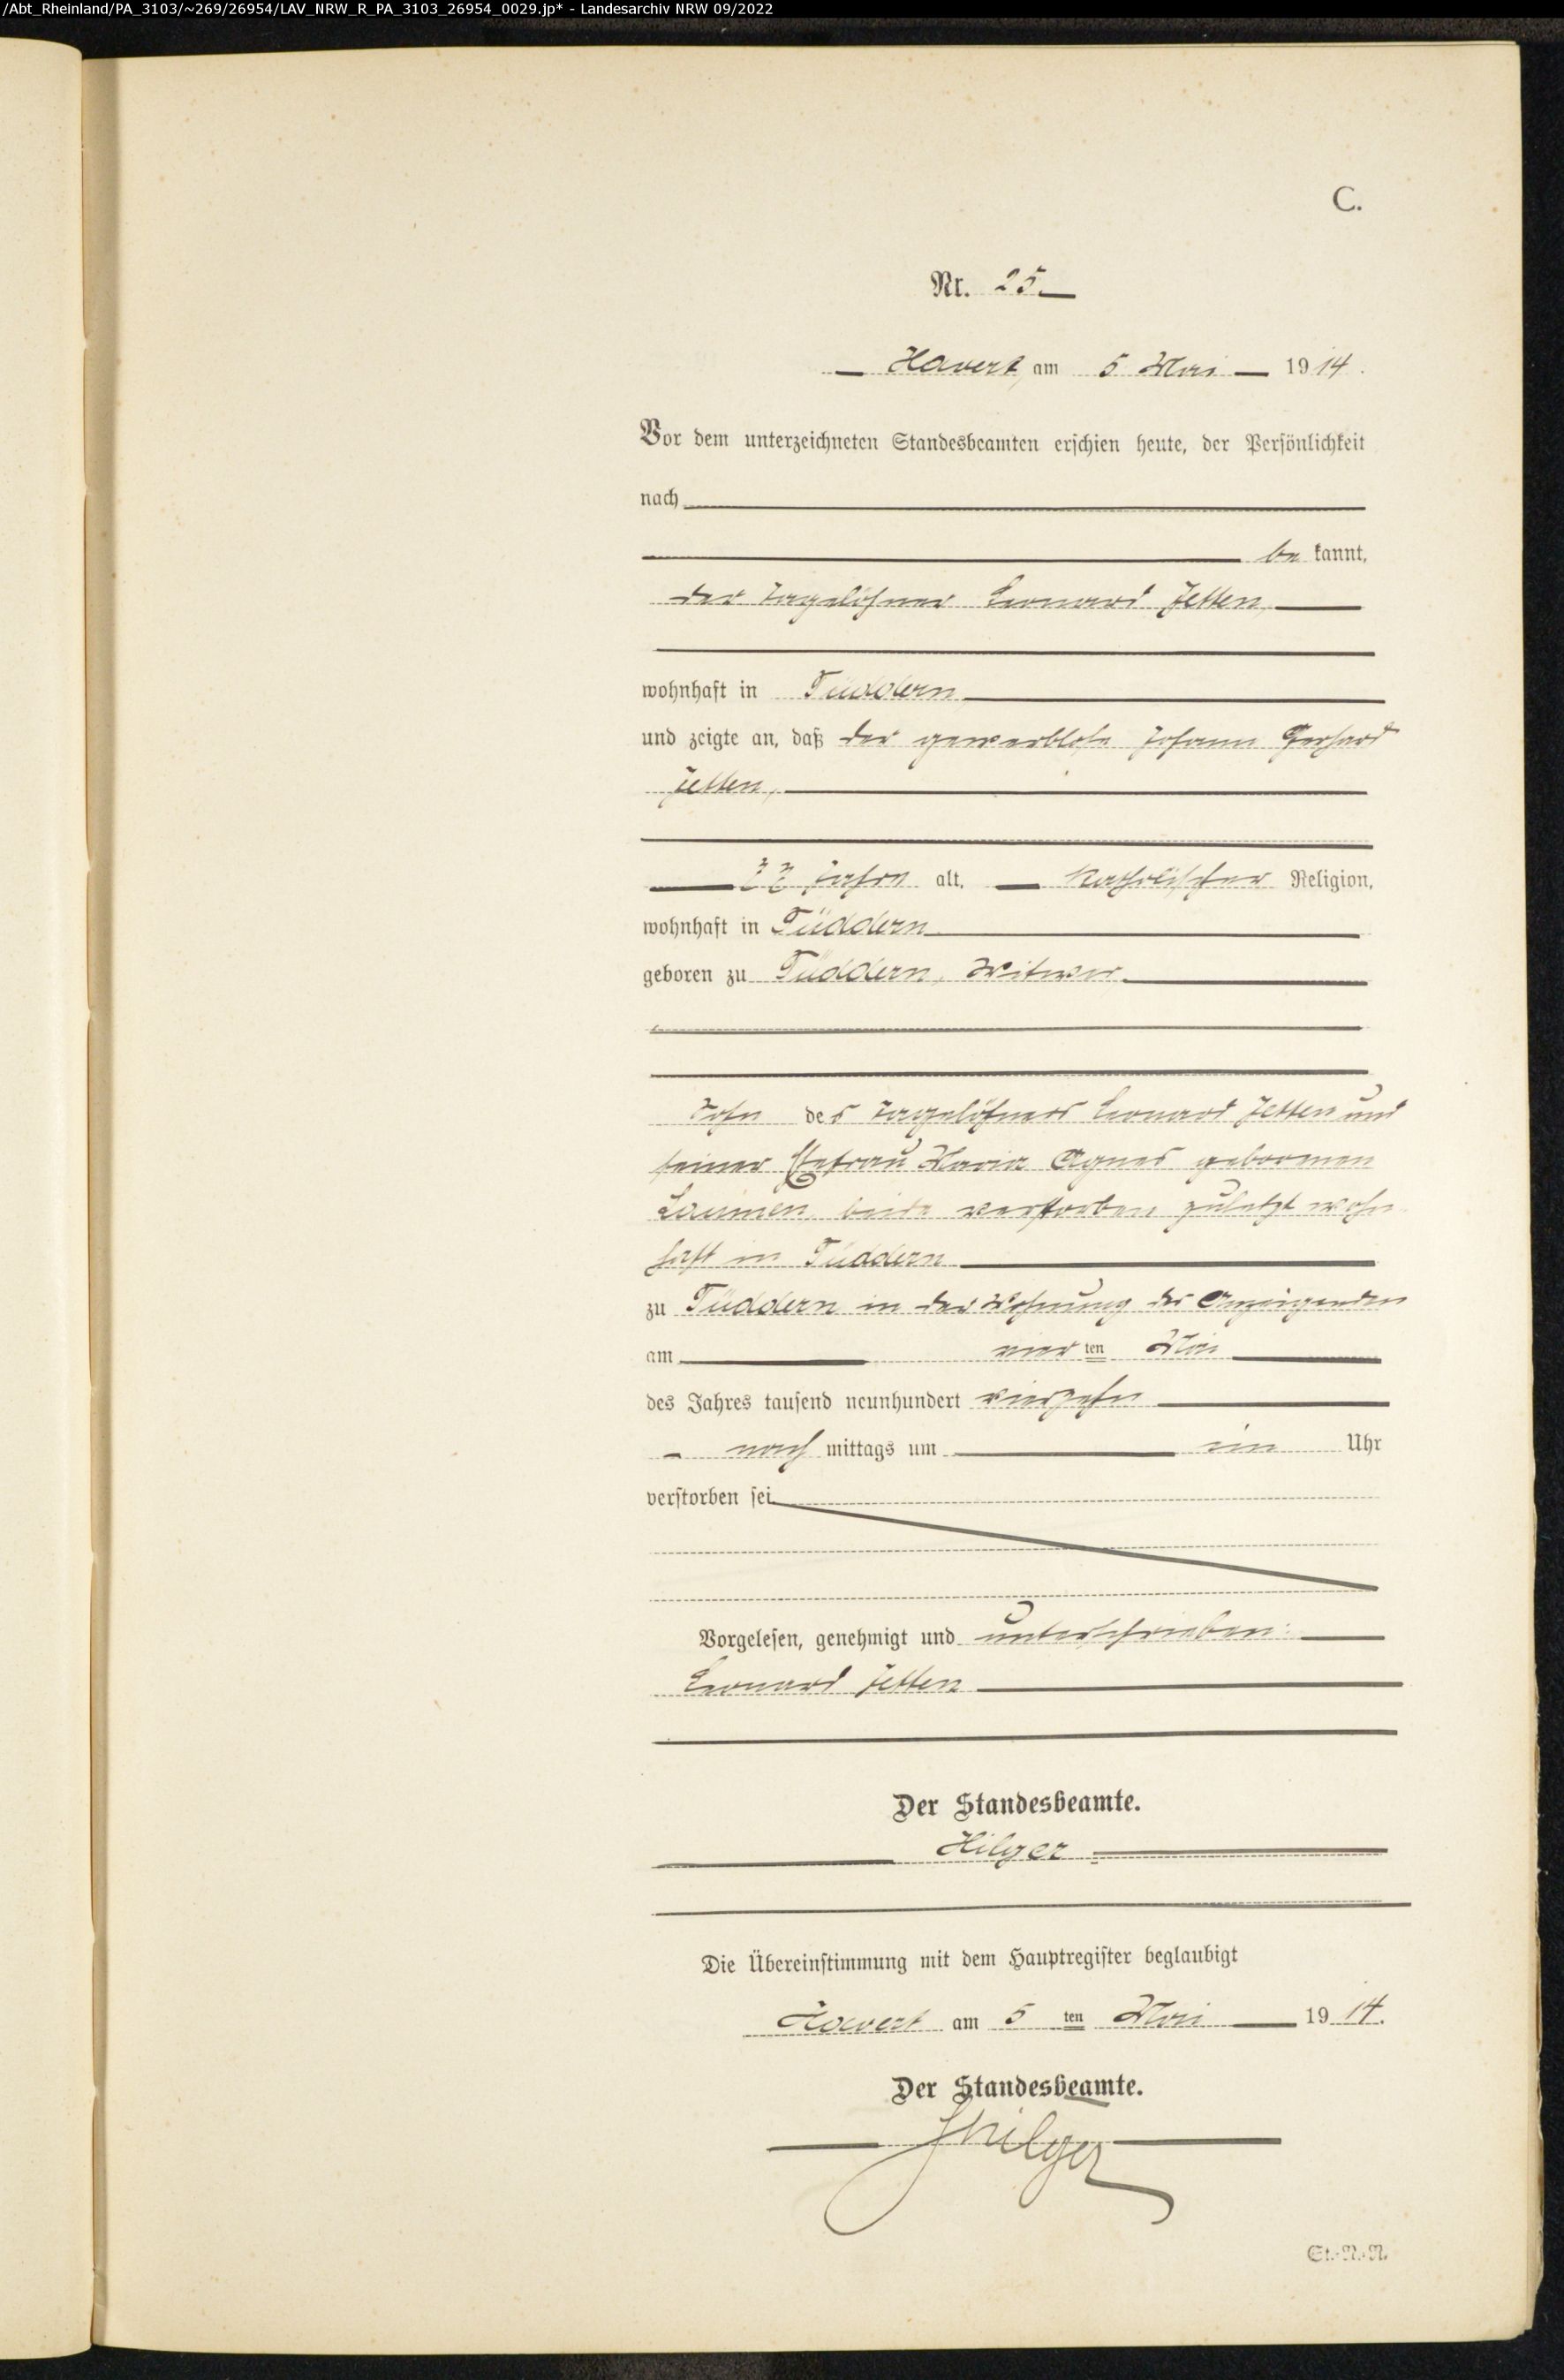 /Abt_Rheinland/PA_3103/~269/26954/LAV_NRW_R_PA_3103_26954_0029.jp* - Landesarchiv NRW 09/2022
C.
Nr. 25
Havert, am 5 Mai 1914.
Vor dem unterzeichneten Standesbeamten erschien heute, der Persönlichkeit
nach
be kannt,
der Tagelöhner Leonard Jetten,
wohnhaft in Tüddern
und zeigte an, daß der gewerblose Johann Gerhard
Jetten,
Jahre alt, Katholischer Religion,
wohnhaft in Tüddern
geboren zu Tüddern, Witwer
Sohn des Tagelöhners Leonard Jetten und
seiner Ehefrau Maria Agnes geborenen
beide verstorben zuletzt wohn
haft in Tüddern
zu Tüddern in der Wohnung des Anzeigenden
am vier ten Mai
des Jahres tausend neunhundert vierzehn
nach mittags um ein Uhr
verstorben sei
Vorgelesen, genehmigt und unterschrieben:
Leonard Jetten
Der Standesbeamte.
Hilger
Die Übereinstimmung mit dem Hauptregister beglaubigt
Havert am 5 ten Mai 1914.
Der Standesbeamte.
Hilger